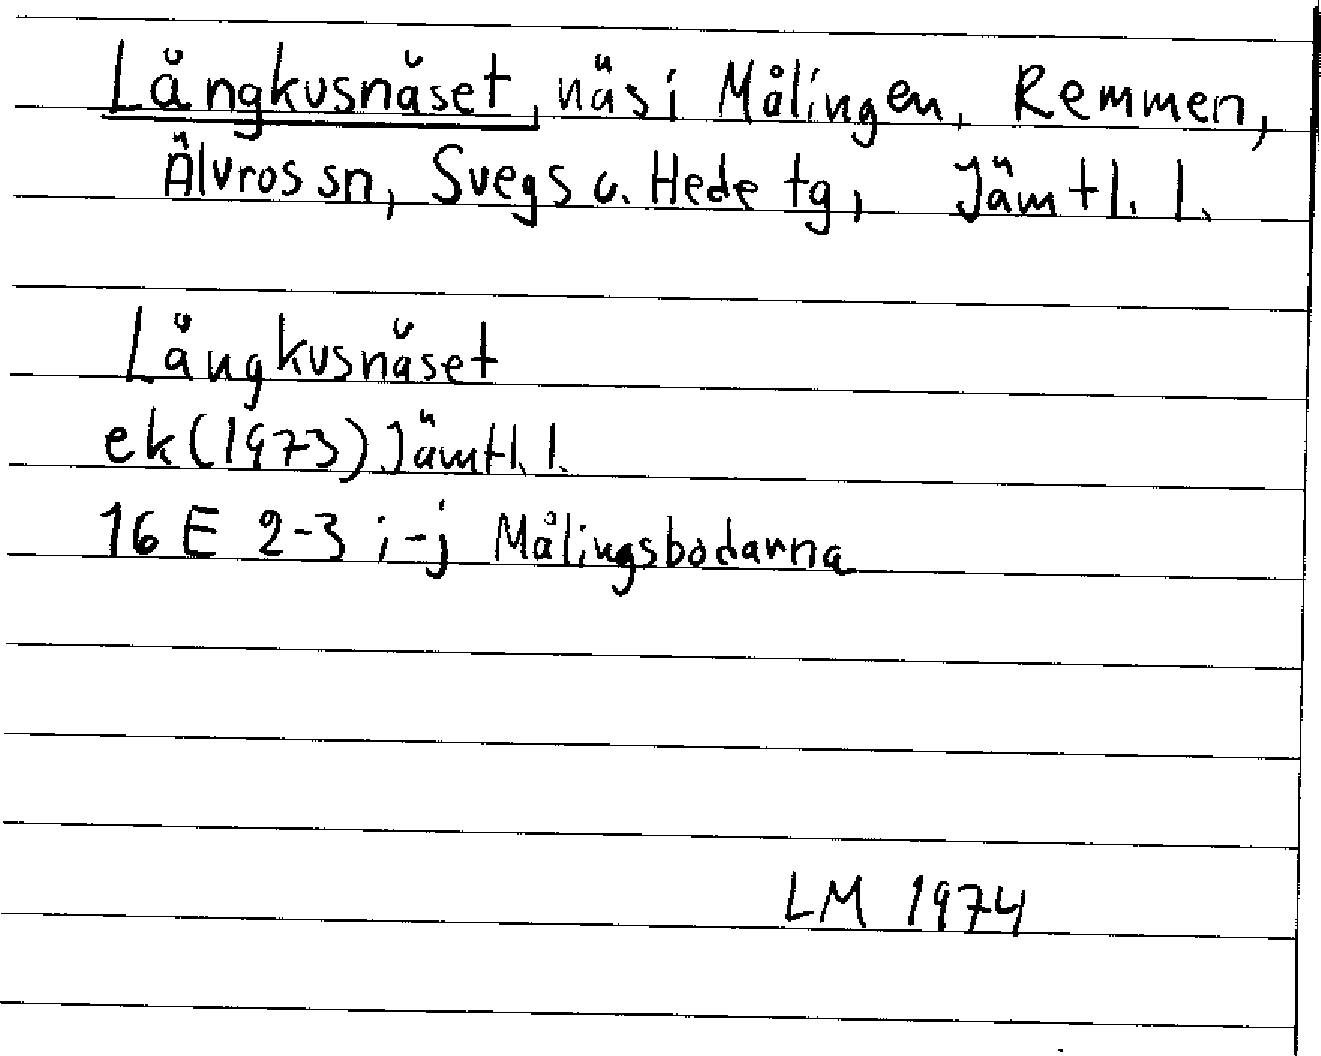 Långkusnäset, näs i Målingen, Remmen,
Älvros sn, Svegs o. Hede tg, Jämtl. l.
Långkusnäset
ek (1973) Jämtl. l.
16 E 2-3 i-j Målingsbodarna
LM 1974